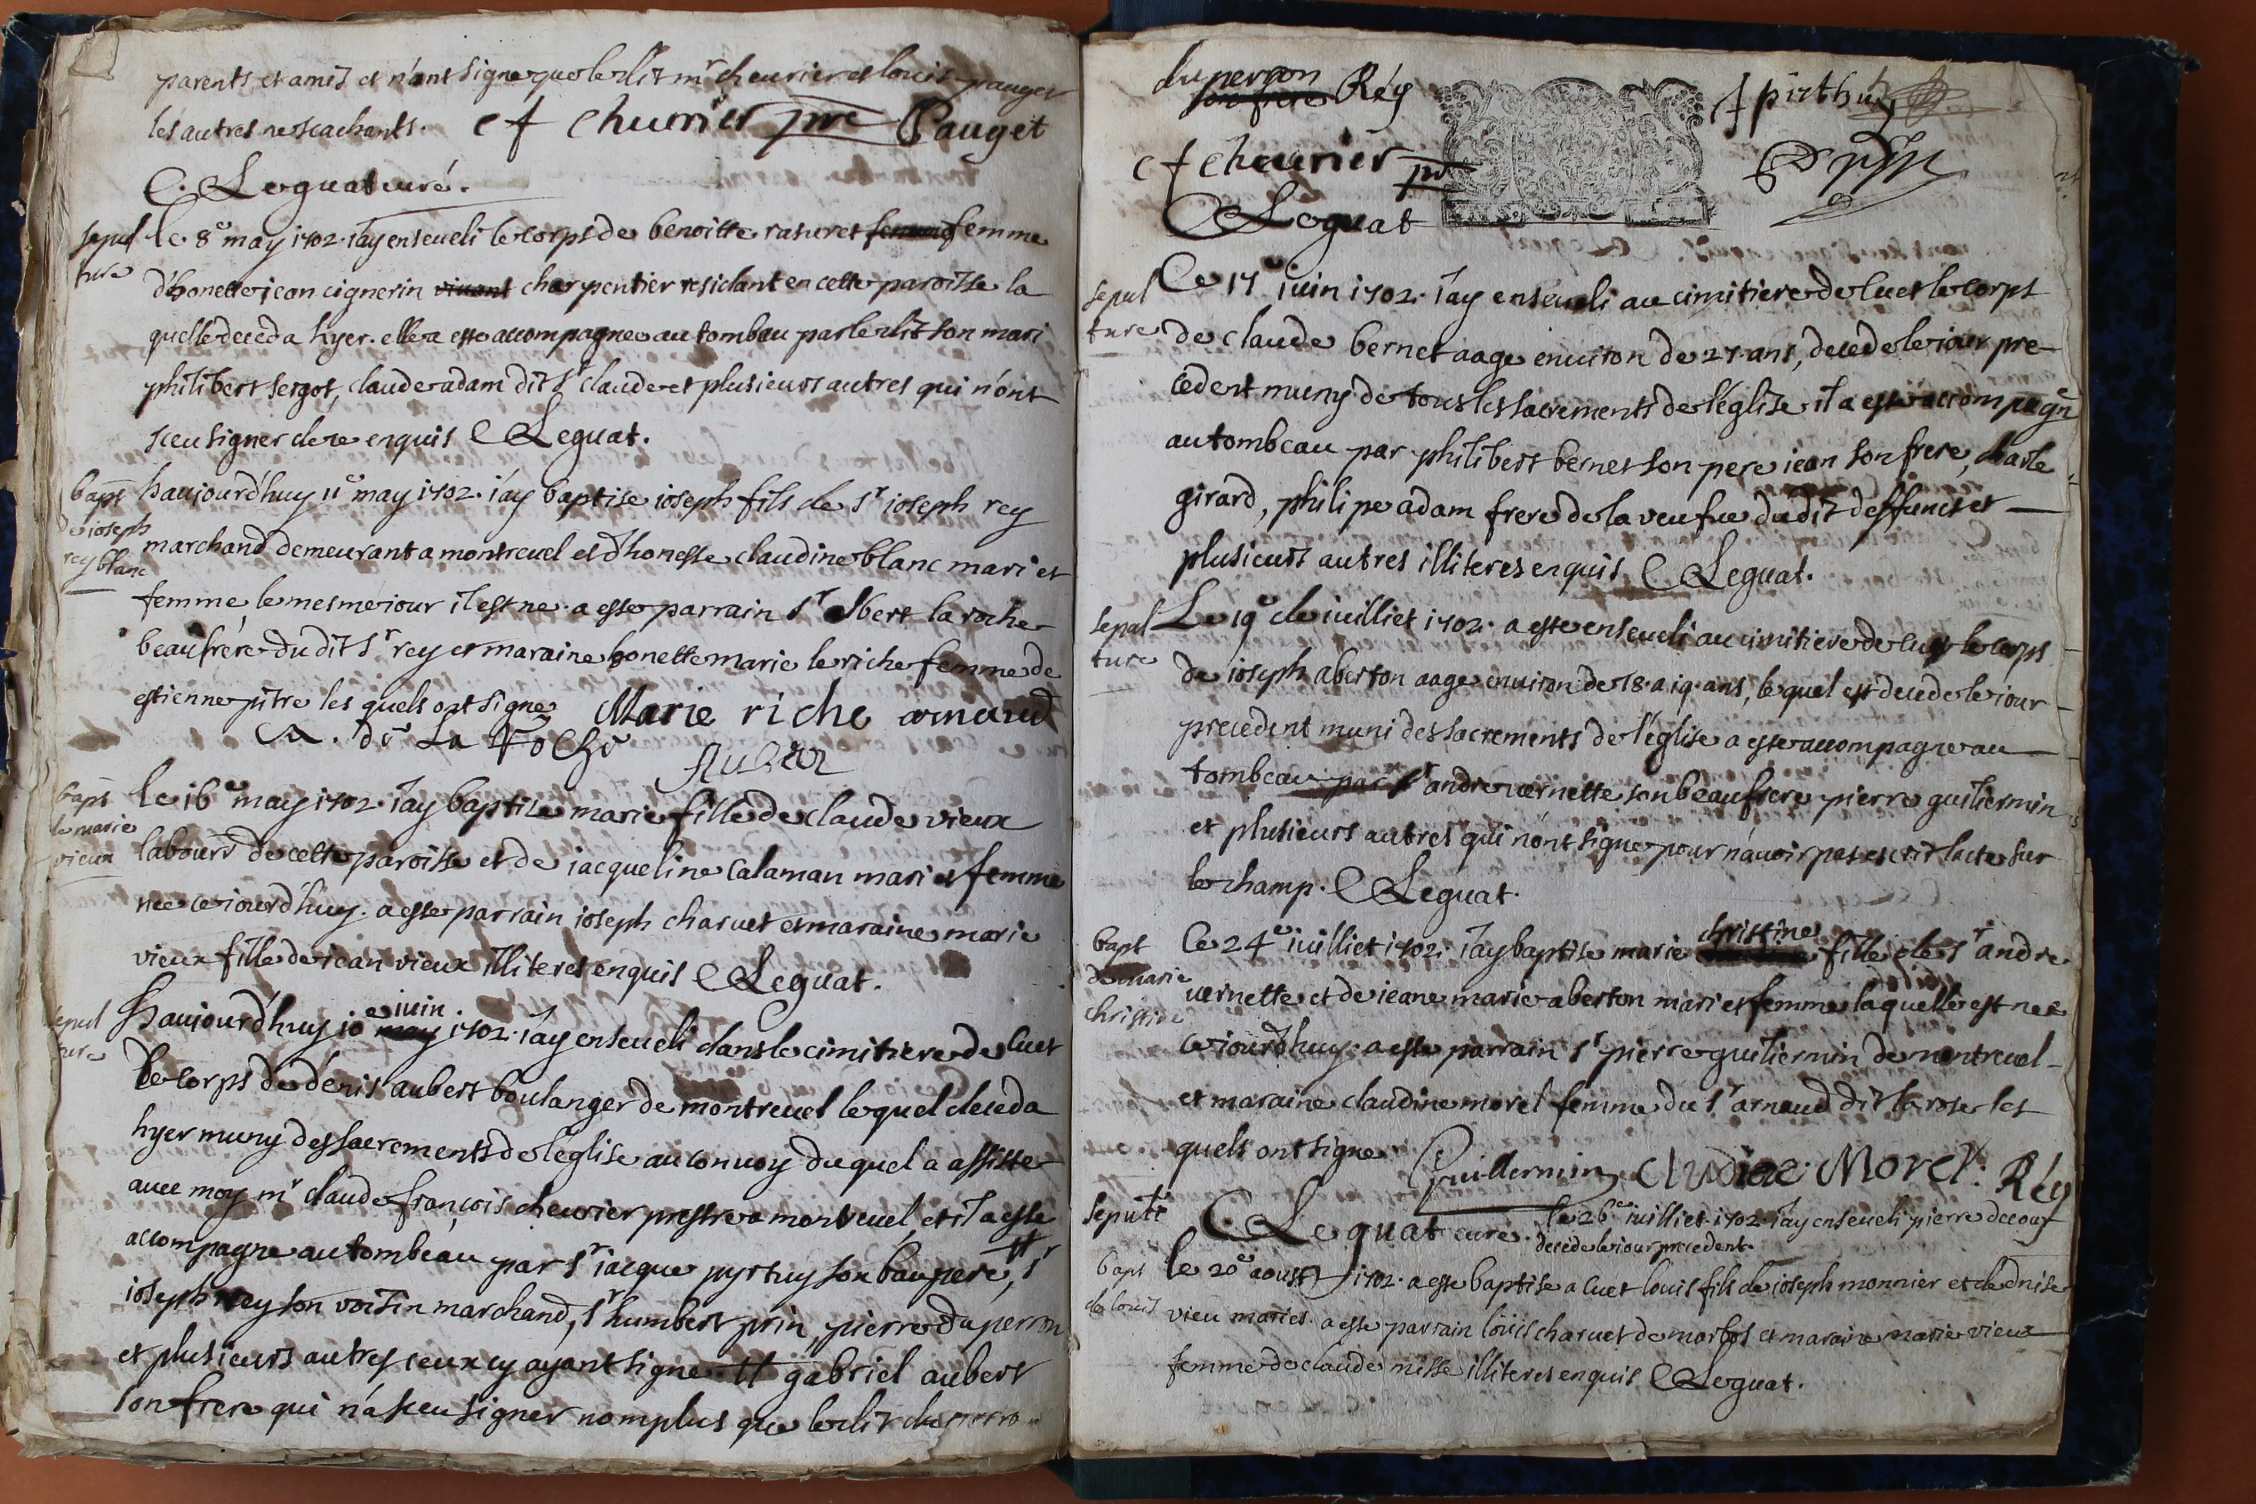 parents et amis et n'ont signe que le dit mr cheurier et louis pauget
les autres ne scachants. c f cheurier pre Pauget
C. Leguat curé.
sepul
ture
le 8e may 1702. i'ay enseueli le corps de benoitte rasuret femme
d'honette jean cignerin vivant charpentier residant en cette paroisse la
quelle deceda hyer. elle a este accompagnee au tombau par le dit son mari
philibert sergot, claude adam dit st claude et plusieurs autres qui n'ont
sceu signer de ce enquis C Leguat.
bapt
de ioseph
rey blanc
haujourd'huy 11e may 1702. i'ay baptise ioseph fils de sr ioseph rey
marchand demeurant a montreuel et d'honeste claudine blanc mari et
femme, le mesme iour il est ne. a este parrain sr albert la roche
beaufrere du dit sr rey et maraine honette marie le riche femme de
estienne pitre les quels ont signe Marie riche arnaud
A. de La Roche
Auber
bapt
de marie
vieux
le 16e may 1702. i'ay baptise marie fille de claude vieux
labourr de cette paroisse et de iacqueline calaman mari et femme
nee ce iourd'huy. a este parrain ioseph charuet et maraine marie
vieux fille de iean vieux illiteres enquis C Leguat.
sepul
ture
haujourd'huy 10e may iuin 1702. i'ay enseueli dans le cimitiere de cuet
le corps de denis aubert boulanger de montreuel le quel deceda
hyer muny des sacrements de l'eglise au conuoy du quel a assiste
auec moy mr claude françois cheurier prestre a montreuel et il a este
accompagne au tombeau par sr iacque pyrtuy son baupere, # sr
ioseph rey son voisin marchand, sr humbert prin, pierre du perron
et plusieurs autres ceux cy ayant signe # gabriel aubert
son frere qui n'a sceu signer nomplus que le dit du perron
du perron
son frere Réy J pirthuy
c f cheurier pre
C Leguat
sepul
ture
Ce 17e iuin 1702. i'ay enseueli au cimitiere de cuet le corps
de claude bernet aage enuiron de 27. ans, decede le iour pre
cedent muny de tous les sacrements de l'eglise il a este accompagne
au tombeau par philibert bernet son pere iean son frere, charle
girard, philipe adam frere de la veufue du dit deffunct et
plusieurs autres illiteres enquis C Leguat.
sepul
ture
Le 19e de iuilliet 1702. a este enseueli au cimitiere de cuet le corps
de ioseph aberton aage enuiron de 18. a 19. ans, le quel est decede le iour
precedent muni des sacrements de l'eglise a este accompagne au
tombeau par sr andre vernette son beaufrere pierre guiliermin
et plusieurs autres qui n'ont signe pour n'auoir pas escrit l'acte sur
le champ. C Leguat.
bapt
de marie
christine
Ce 24e iuilliet 1702. i'ay baptise marie christine fille de sr andre
vernette et de ieane marie aberton mari et femme laquelle est nee
ce iourd'huy. a este parrain sr pierre guiliermin de montreuel
et maraine claudine morel femme du sr arnaud dit la rose les
quels ont signe Guillermin Cludine Morel. Réy
C. Leguat curé.
sepult
le 26e iuilliet 1702. i'ay enseueli pierre decouf
decede le iour precedent.
bapt
de louis
le 20e aoust 1702. a este baptise a cuet louis fils de ioseph monnier et de dnise
vieu maries. a este parrain louis charuet de marbos et maraine marie vieux
femme de claude nisse illiteres enquis C Leguat.